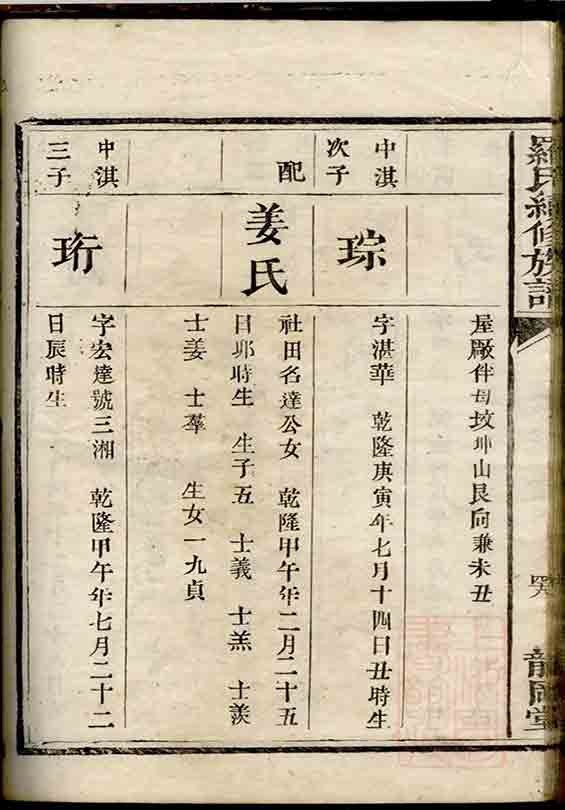 羅氏續修族譜
龍岡堂
屋廠伴母坟坤山艮向兼未丑
中淇
次子
琮
字湛華 乾隆庚寅年七月十四日丑時生
配
姜氏
社田名達公女 乾隆甲午年二月二十五
日邜時生 生子五 士義 士羔 士羨
士姜 士羣 生女一九貞
中淇
三子
珩
字宏達號三湘 乾隆甲午年七月二十二
日辰時生